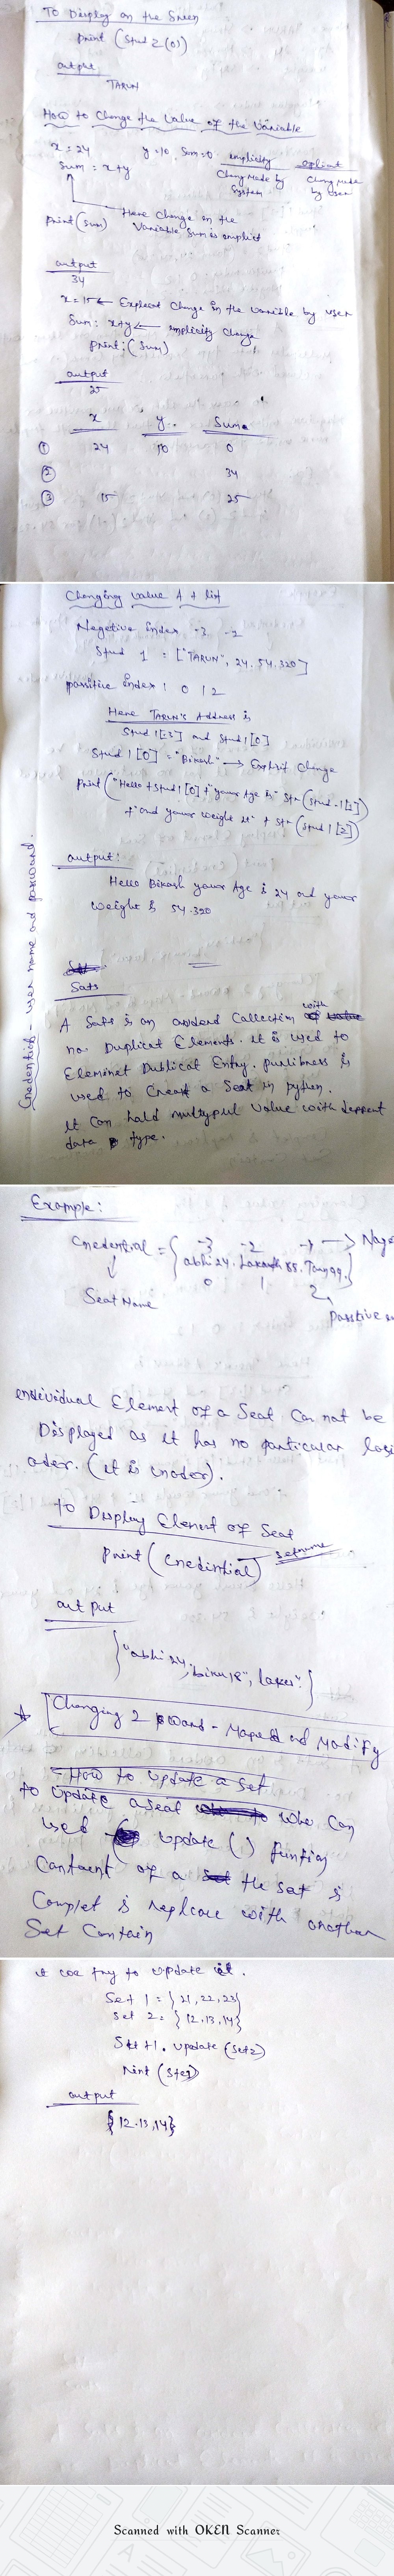 To Display on the Sreen
print (Stud 2 (0))
output
TARUN
How to Change the Value of the Variable
x = 24 y=10 Sum=0 implicity explicat
Sum = x+y Chang Made by System Chang Made by User
print (sum) Here Change in the
Variable Sum is implict
output
34
x = 15 ← Explicat Change in the variable by user
Sum: x+y ← implicity Change
print: (Sum)
output
25
x y Sum
① 24 10 0
② 34
③ 15 25
Changing value A + list
Negetive index -3 -1
Stud 1 = ["TARUN", 24, 54.320]
possitive index ! 0 1 2
Here TARUN'S Address is
Stud 1 [-3] and Stud 1 [0]
Stud 1 [0] = "Bikash" → Explisit Change
Print ("Hello + Stud 1 [0] + "youns Age is" Str (Stud-1 [1])
+ "and youns weight is" + Str (Stud 1 [2])
output:
Hello Bikash youns Age is 24 and youns
weight is 54.320
Credentials - user name and password.
Sats
A Sats is an Collection with
no. Duplicat Elements. it is used to
Eleminet Dublicat Entry. is
used to Creat a Seat in python.
it can hold multypul value with
data type.
Example:
Credential = { abhi 24. 88. } → Nage
-3 -2 -1
0 1 2
Seat Name
passtive
endividual Element of a Seat Can not be
Displayed as it has no particular
oder. (it is unoder).
to Display Element of Seat
print (Credintial) Setname
out put
{"abhi 24, binu 18", }
Changing 2 - and Modify
How to update a Set
to update a seat Who Can
used update () funtion
Cantaent of a the sat is
Complet is replcace with onothen
Set Contain
we try to update
Set 1 = {21, 22, 23}
Set 2 = {12.13, 14}
Set 1. update (Set2)
output
{12.13, 14}
Scanned with OKEN Scanner